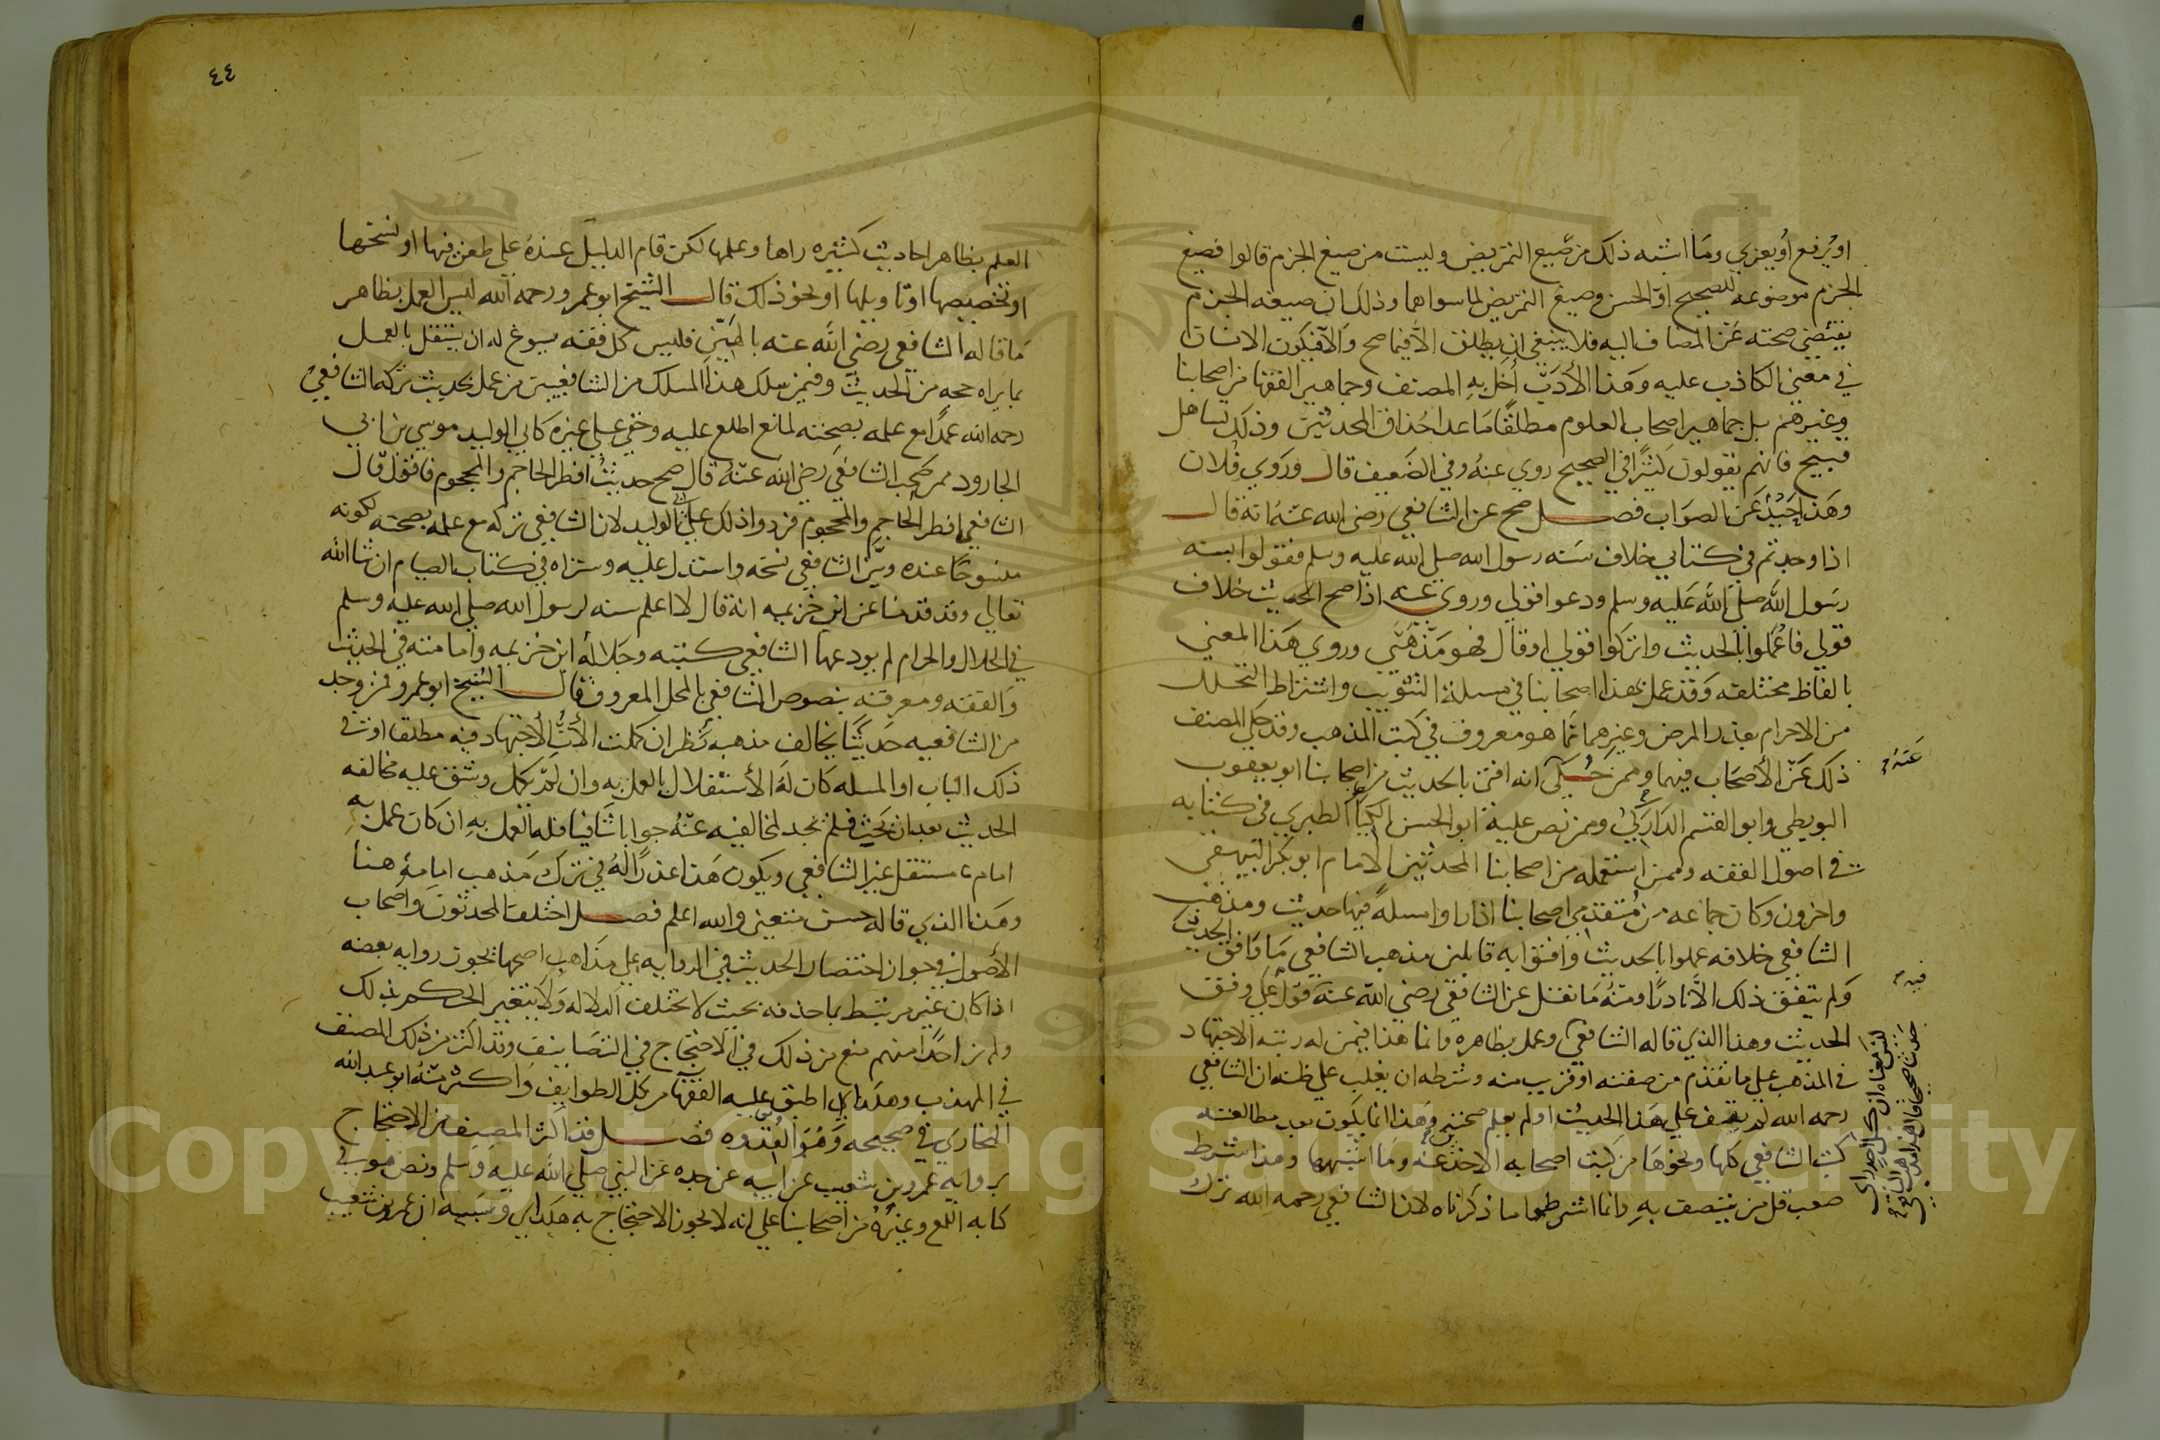 او يرفع او يعزى وما اشبه ذلك من صيغ التمريض وليست من صيغ الجزم قالوا فصيغ
الجزم موضوعه للصحيح او الحسن وصيغ التمريض لما سواهما وذلك ان صيغه الجزم
يقتضي صحته عن المضاف اليه فلا ينبغي ان يطلق الا فيما صح والا فيكون الانسان
في معنى الكاذب عليه وهذا الادب اخل به المصنف وجماهير الفقها من اصحابنا
وغيرهم بل جماهير اصحاب العلوم مطلقا ما عدا حذاق المحدثين وذلك تساهل
قبيح فانهم يقولون كثيرا في الصحيح روي عنه وفي الضعيف قال وروى فلان
وهذا حيد عن الصواب فصل صح عن الشافعي رضي الله عنه انه قال
اذا وجدتم في كتابي خلاف سنه رسول الله صلى الله عليه وسلم فقولوا بسنه
رسول الله صلى الله عليه وسلم ودعوا قولي وروي عنه اذا صح الحديث خلاف
قولي فاعملوا بالحديث واتركوا قولي او قال فهو مذهبي وروي هذا المعنى
بالفاظ مختلفه وقد عمل بهذا اصحابنا في مسلة التثويب واشتراط التحلل
من الاحرام بعذر المرض وغيرهما مما هو معروف في كتب المذهب وقد حكى المصنف
ذلك عن الاصحاب فيهما وممن حكي انه افتى بالحديث من اصحابنا ابو يعقوب
عنه
البويطي وابو القسم الداركي وممن نص عليه ابو الحسن الكيا الطبري في كتابه
في اصول الفقه وممن استعمله من اصحابنا المحدثين الامام ابو بكر البيهقي
واخرون وكان جماعه من متقدمي اصحابنا اذا راوا مسلة فيها حديث ومذهب
الشافعي خلافه عملوا بالحديث وافتوا به قايلين مذهب الشافعي ما وافق الحديث
ولم يتفق ذلك الا نادرا ومنه ما نقل عن الشافعي رضي الله عنه قول على وفق
فيه
الحديث وهذا الذي قاله الشافعي وعمل بظاهره وانما هذا فيمن له رتبه الاجتهاد
ليس معناه ان كل احد راى
حديثا صحيحا قال هذا مذهب الشافعي
في المذهب على ما تقدم من صفته او قريب منه وشرطه ان يغلب على ظنه ان الشافعي
رحمه الله لم يقف على هذا الحديث او لم يعلم صحته وهذا انما يكون بعد مطالعته
كتب الشافعي كلها ونحوها من كتب اصحابه الاخذ عنه وما اشبهها وهذا شرط
صعب قل من يتصف به وانما اشترطوا ما ذكرناه لان الشافعي رحمه الله ترك
٤٤
العلم بظاهر احاديث كثيره راها وعلمها لكن قام الدليل عنده على طعن فيها او نسخها
او تخصيصها او تاويلها او نحو ذلك قال الشيخ ابو عمرو رحمه الله ليس العمل بظاهر
ما قاله الشافعي رضي الله عنه بالهين فليس كل فقيه يسوغ له ان يستقل بالعمل
بما يراه حجه من الحديث وفيمن سلك هذا المسلك من الشافعيين من عمل بحديث تركه الشافعي
رحمه الله عمدا مع علمه بصحته لمانع اطلع عليه وخفي على غيره كابي الوليد موسى بن ابي
الجارود ممن صحب الشافعي رضي الله عنه قال صح حديث افطر الحاجم والمحجوم فاقول قال
الشافعي افطر الحاجم والمحجوم فردوا ذلك على ابي الوليد لان الشافعي تركه مع علمه بصحته لكونه
منسوخا عنده وبين الشافعي نسخه واستدل عليه وستراه في كتاب الصيام ان شا الله
تعالى وقد قدمنا عن ابن خزيمه انه قال لا اعلم سنه لرسول الله صلى الله عليه وسلم
في الحلال والحرام لم يودعها الشافعي كتبه وجلالة ابن خزيمه وامامته في الحديث
والفقه ومعرفته بنصوص الشافعي بالمحل المعروف قال الشيخ ابو عمرو فمن وجد
من الشافعيه حديثا يخالف مذهبه نظر ان كملت الات الاجتهاد فيه مطلقا او في
ذلك الباب او المسله كان له الاستقلال بالعمل به وان لم يكمل وشق عليه مخالفه
الحديث بعد ان بحث فلم يجد لمخالفيه عنه جوابا شافيا فله العمل به ان كان عمل به
امام مستقل غير الشافعي ويكون هذا عذرا له في ترك مذهب امامه هنا
وهذا الذي قاله حسن متعين والله اعلم فصل اختلف المحدثون واصحاب
الاصول في جواز اختصار الحديث في الروايه على مذاهب اصحها يجوز روايه بعضه
اذا كان غير مرتبط بما حذفه بحيث لا تختلف الدلاله ولا يتغير الحكم بذلك
ولم نر احدا منهم منع من ذلك في الاحتجاج في التصانيف وقد اكثر من ذلك المصنف
في المهذب وهكذا اطبق عليه الفقها من كل الطوايف واكثر منه ابو عبد الله
البخاري في صحيحه وهو القدوه فصل قد اكثر المصنف من الاحتجاج
بروايه عمرو بن شعيب عن ابيه عن جده عن النبي صلى الله عليه وسلم ونص هو في
كتابه اللمع وغيره من اصحابنا على انه لا يجوز الاحتجاج به هكذا وسببه ان عمرو بن شعيب
Copyright © King Saud University